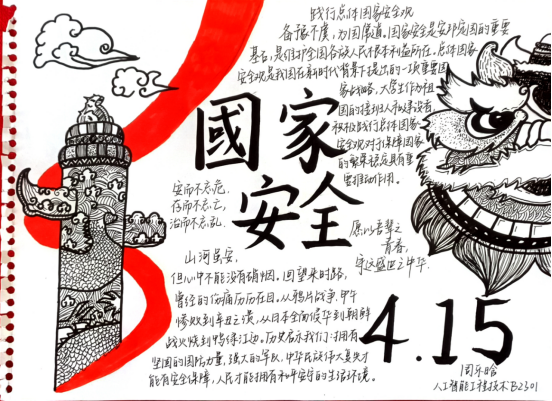 践行总体国家安全观
备豫不虞，为国常道。国家安全是安邦定国的重要
基石，是维护全国各族人民根本利益所在。总体国家
安全观是我国在新时代背景下提出的一项重要国
家战略，大学生作为祖
国的接班人和建设者
积极践行总体国家
安全观对于保障国家
的繁荣稳定具有重
要推动作用。
國家
安全
安而不忘危，
存而不忘亡，
治而不忘乱。
愿以吾辈之
青春，
守这盛世之中华
山河虽安，
但心中不能没有硝烟。回望来时路，
曾经的伤痛历历在目，从鸦片战争、甲午
惨败到辛丑之辱，从日本全面侵华到朝鲜
战火烧到鸭绿江边。历史启示我们：拥有
坚固的国防力量，强大的军队，中华民族伟大复兴才
能有安全保障，人民才能拥有和平安宁的生活环境。
4.15
周乐晗
人工智能工程技术B2301